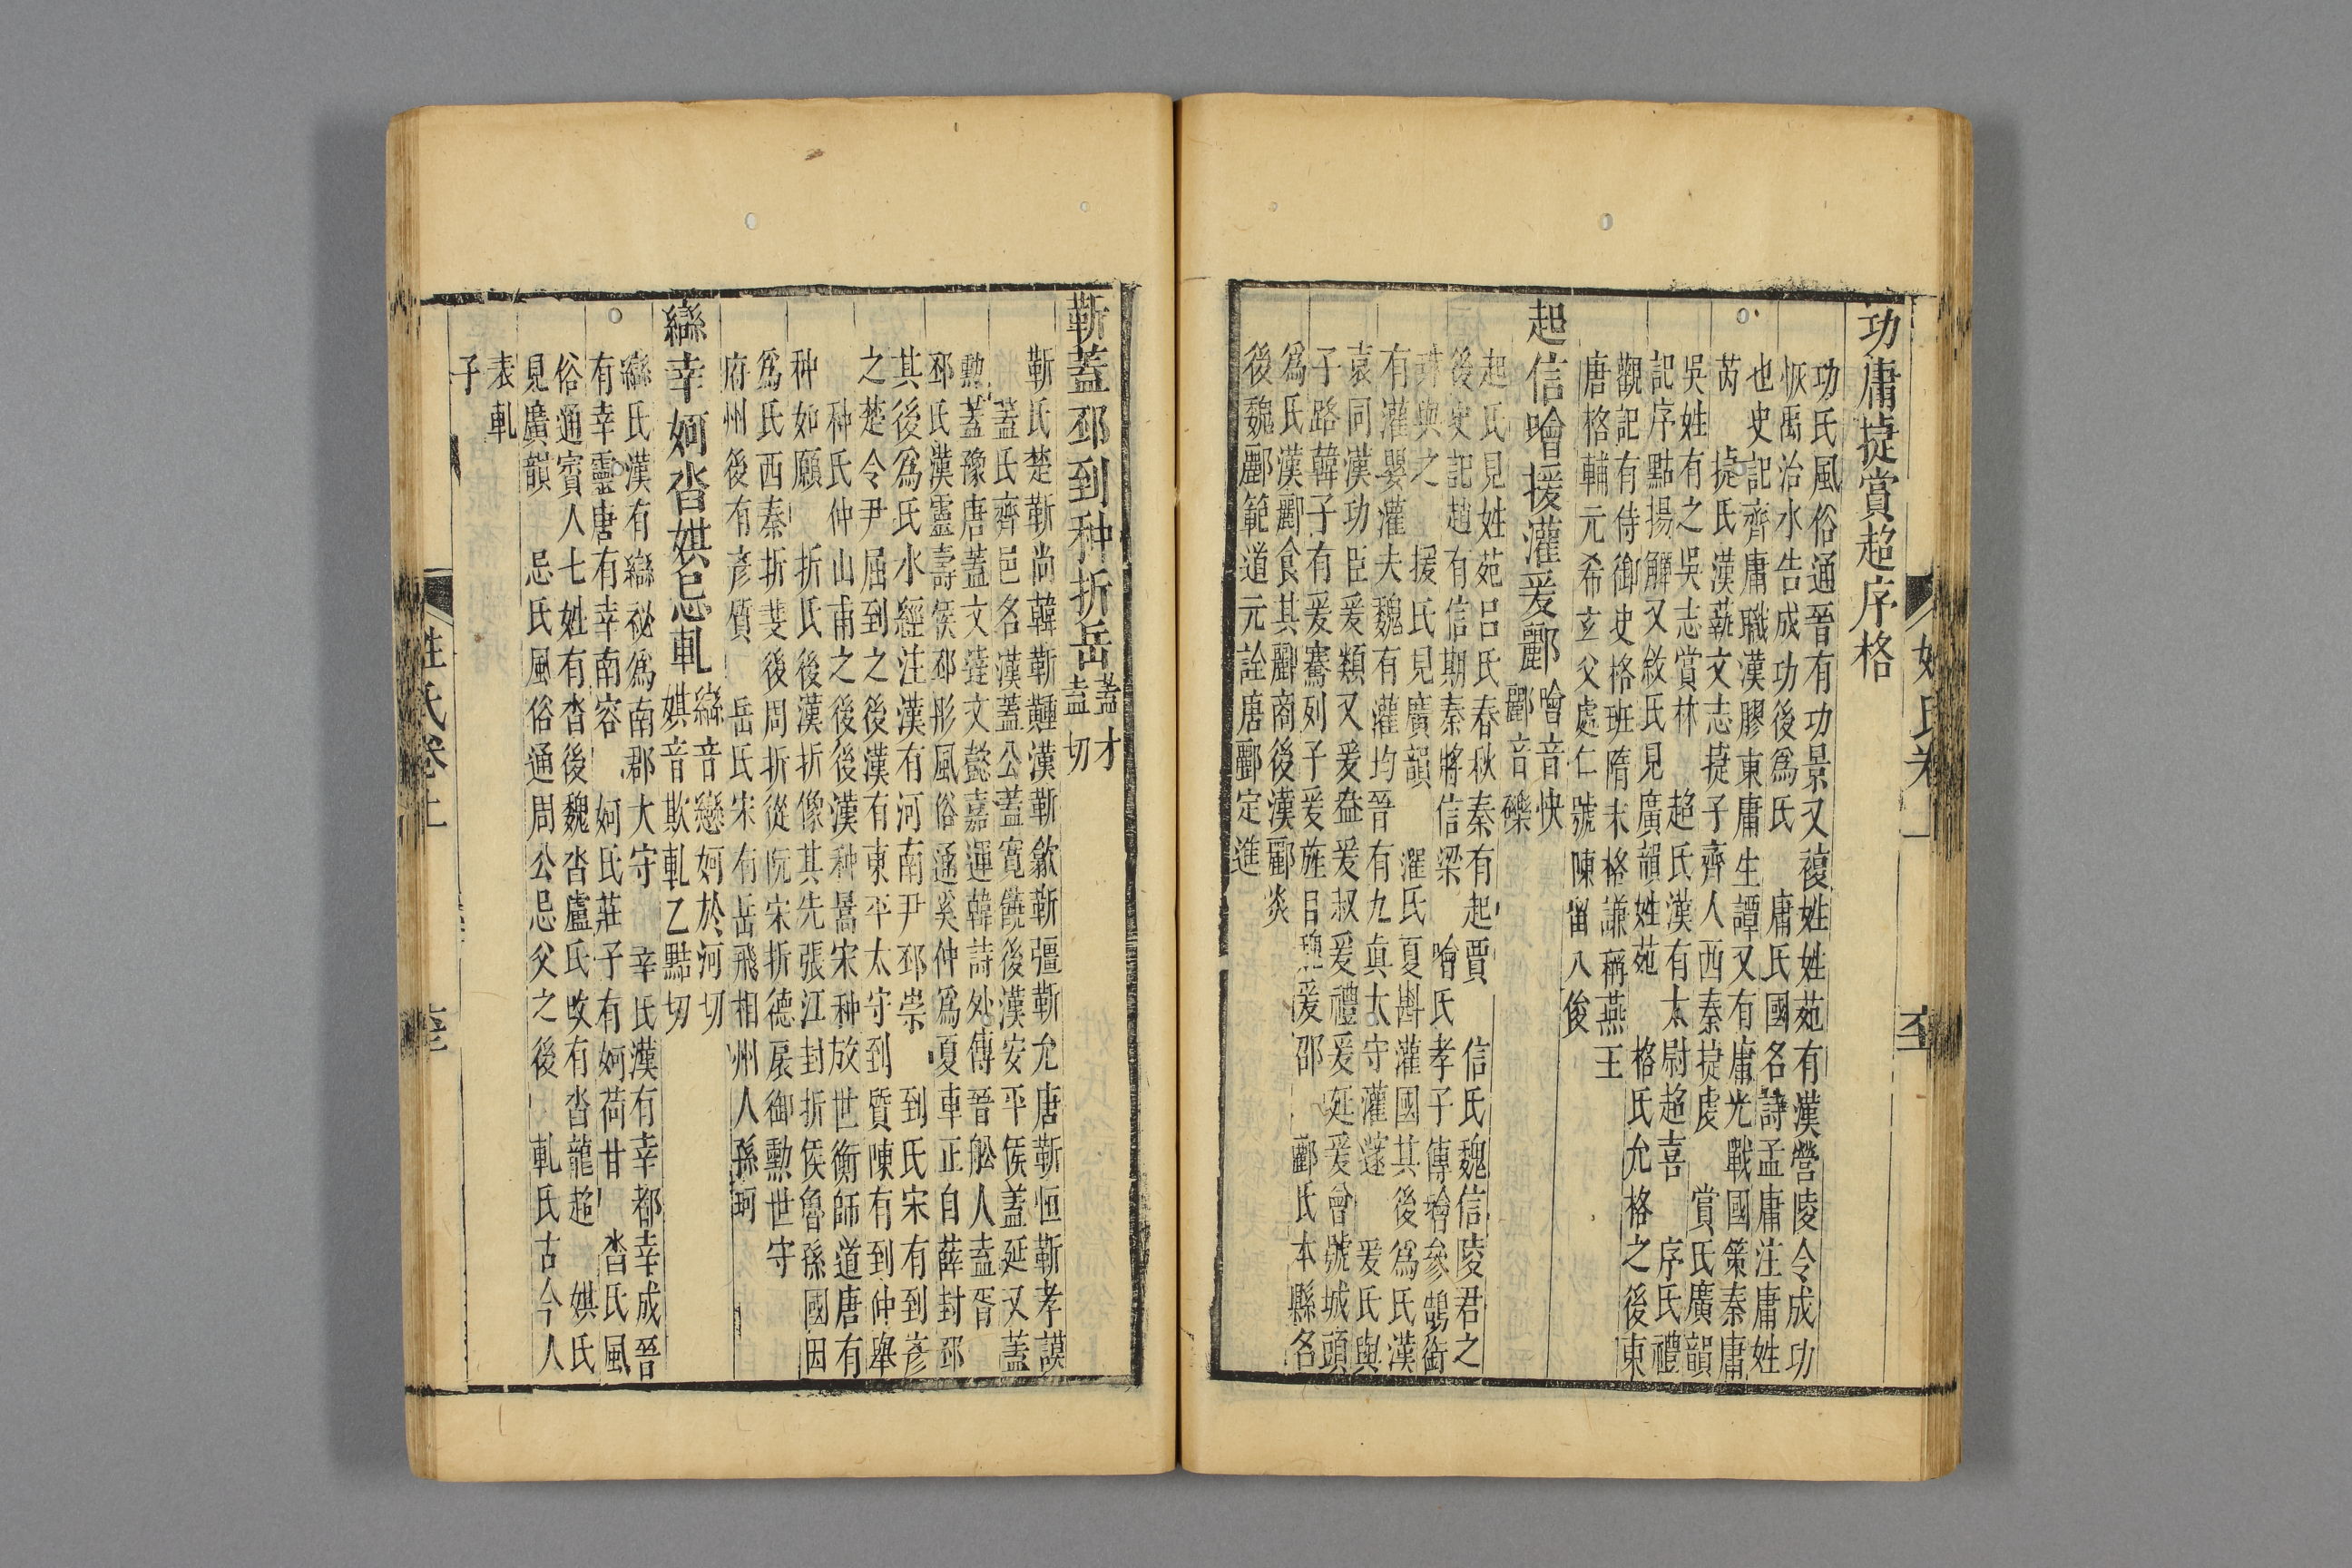 功庸㨗賞超序格
功氏風俗通晉有功景又複姓姓苑有漢營陵令成功
恢禹治水告成功後爲氏　庸氏國名詩孟庸注庸姓
也史記齊庸職漢膠東庸生譚又有庸光戰國策秦庸
芮　㨗氏漢蓺文志㨗子齊人西秦㨗虔　賞氏廣韻
吳姓有之吳志賞林　超氏漢有太尉超喜　序氏禮
記序點揚觶又敘氏見廣韻姓苑　格氏允格之後東
觀記有侍御史格班隋末格謙稱燕王
唐格輔元希玄父處仁號陳留八俊
起信噲援灌爰酈噲音快酈音礫
起氏見姓苑呂氏春秋秦有起賈　信氏魏信陵君之
後史記趙有信期秦將信梁　噲氏孝子傳噲參鵠銜
珠與之　援氏見廣韻　灌氏夏斟灌國其後爲氏漢
有灌嬰灌夫魏有灌均晉有九真太守灌邃　爰氏與
袁同漢功臣爰類又爰盎爰叔爰禮爰延爰曾號城頭
子路韓子有爰騫列子爰旌目魏爰邵　酈氏本縣名
爲氏漢酈食其酈商後漢酈炎
後魏酈範道元詮唐酈定進
姓氏卷上
靳蓋邳到种折岳蓋才盍切
靳氏楚靳尚韓靳䵎漢靳歙靳彊靳允唐靳恒靳孝謨
蓋氏齊邑名漢蓋公蓋寬饒後漢安平侯蓋延又蓋
勲蓋豫唐蓋文達文懿嘉運韓詩外傳晉舩人盍胥
邳氏漢靈壽侯邳彤風俗通奚仲爲夏車正自薛封邳
其後爲氏水經注漢有河南尹邳崇　到氏宋有到彥
之楚令尹屈到之後漢有東平太守到質陳有到仲舉
种氏仲山甫之後後漢种暠宋种放世衡師道唐有
种如願　折氏後漢折像其先張江封折侯魯孫國因
爲氏西秦折斐後周折從阮宋折德扆御勲世守
府州後有彥質　岳氏宋有岳飛相州人孫珂
䜌幸妸沓娸忌軋䜌音戀妸於河切娸音欺軋乙黠切
䜌氏漢有䜌祕爲南郡大守　幸氏漢有幸都幸成晉
有幸靈唐有幸南容　妸氏莊子有妸荷甘　沓氏風
俗通賓人七姓有沓後魏沓盧氏攺有沓龍超　娸氏
見廣韻　忌氏風俗通周公忌父之後　軋氏古今人
表軋
子
姓氏卷上